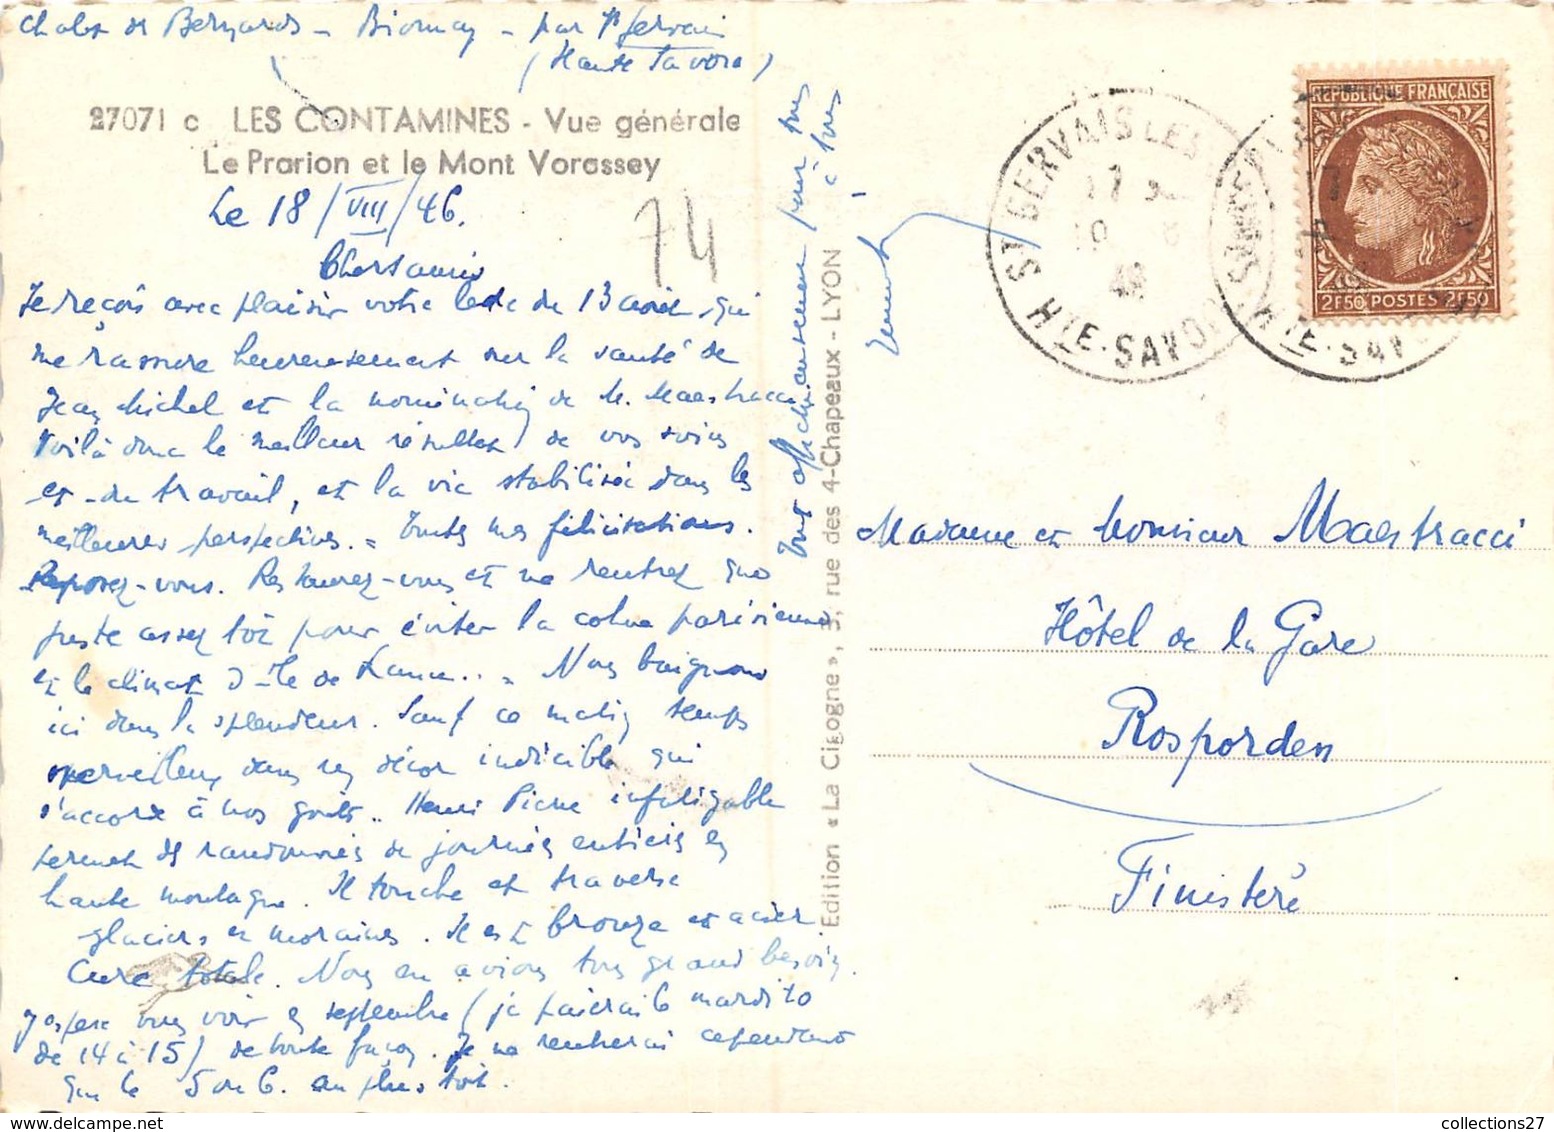 Chalet de Bernards - Bionnay - par St Gervais
(Haute Savoie)
27071 c LES CONTAMINES - Vue générale
Le Prarion et le Mont Vorassey
Le 18/VIII/46.
74
Chers amis
Je reçois avec plaisir votre lettre du 13 août, qui
me rassure heureusement sur la santé de
Jean Michel et la nomination de M. Maestracci.
Voilà donc le meilleur résultat de vos soins
et du travail, et la vie stabilisée dans les
meilleures perspectives. - Toutes mes félicitations.
Reposez-vous. Restaurez-vous et ne rentrez que
juste assez tôt pour éviter la colère parisienne
et le climat d'Ile de France.. - Nous baignons
ici dans la splendeur. Sauf ce matin temps
merveilleux dans un décor indicible qui
s'accorde à nos goûts.. Henri Pierre infatigable
termet des randonnées de journées entières en
haute montagne. Il touche et traverse
glaciers et moraines. Il est bronze et acier
Cure totale. Nous en avions tous grand besoin.
J'espère vous voir en septembre (je passerai le mardi 10
de 14 à 15) de toute façon. Je ne rentrerai cependant
que le 5 ou 6. au plus tôt.
Tout affectueusement pour tous
à tous
Edition « La Cigogne », 3, rue des 4-Chapeaux - LYON
ST GERVAIS LES
HTE-SAVOIE
REPUBLIQUE FRANÇAISE
2F50 POSTES 2F50
Madame et Monsieur Maestracci
Hôtel de la Gare
Rosporden
Finistère
collections27